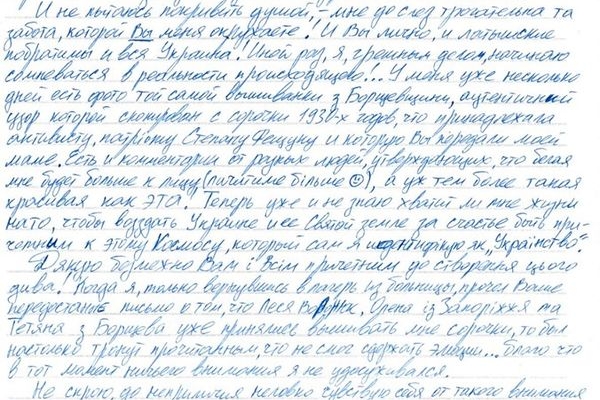 И не пытаюсь покривить душой – мне до слез трогательна та
забота, которой Вы меня окружаете! И Вы лично, и латышские
побратимы и вся Украина! Иной раз, я, грешным делом, начинаю
сомневаться в реальности происходящего... У меня уже несколько
дней есть фото той самой вышиванки з Борщевщини, аутентичний
узор которой скопирован с сорочки 1930-х годов, что принадлежала
активисту, патріоту Степану и которую Вы передали моей
маме. Есть и комментарии от разных людей, утверждающих, что белая
мне будет больше к лицу (личитиме більше ☺), а уж тем более такая
красивая как эта! Теперь уже и не знаю хватит ли мне жизни
на то, чтобы воздать Украине и ее Святой земле за счастье быть при-
четным к этому Космосу, который сам я ідентифікую як „Українство".
Дякую безмежно Вам і Всім причетним до створення цього
дива! Когда я, только вернувшись в лагерь из больницы, прочел Ваше
передостанн письмо о том, что Леся Олена із Запоріжжя та
Тетяна з Борщева уже принялись вышивать мне сорочки, то был
настолько тронут прочитанным, что не смог сдержать эмоции... благо что
в тот момент ничьего внимания я не удосуживался.
Не скрою, до неприличия неловко чувствую себя от такого внимания